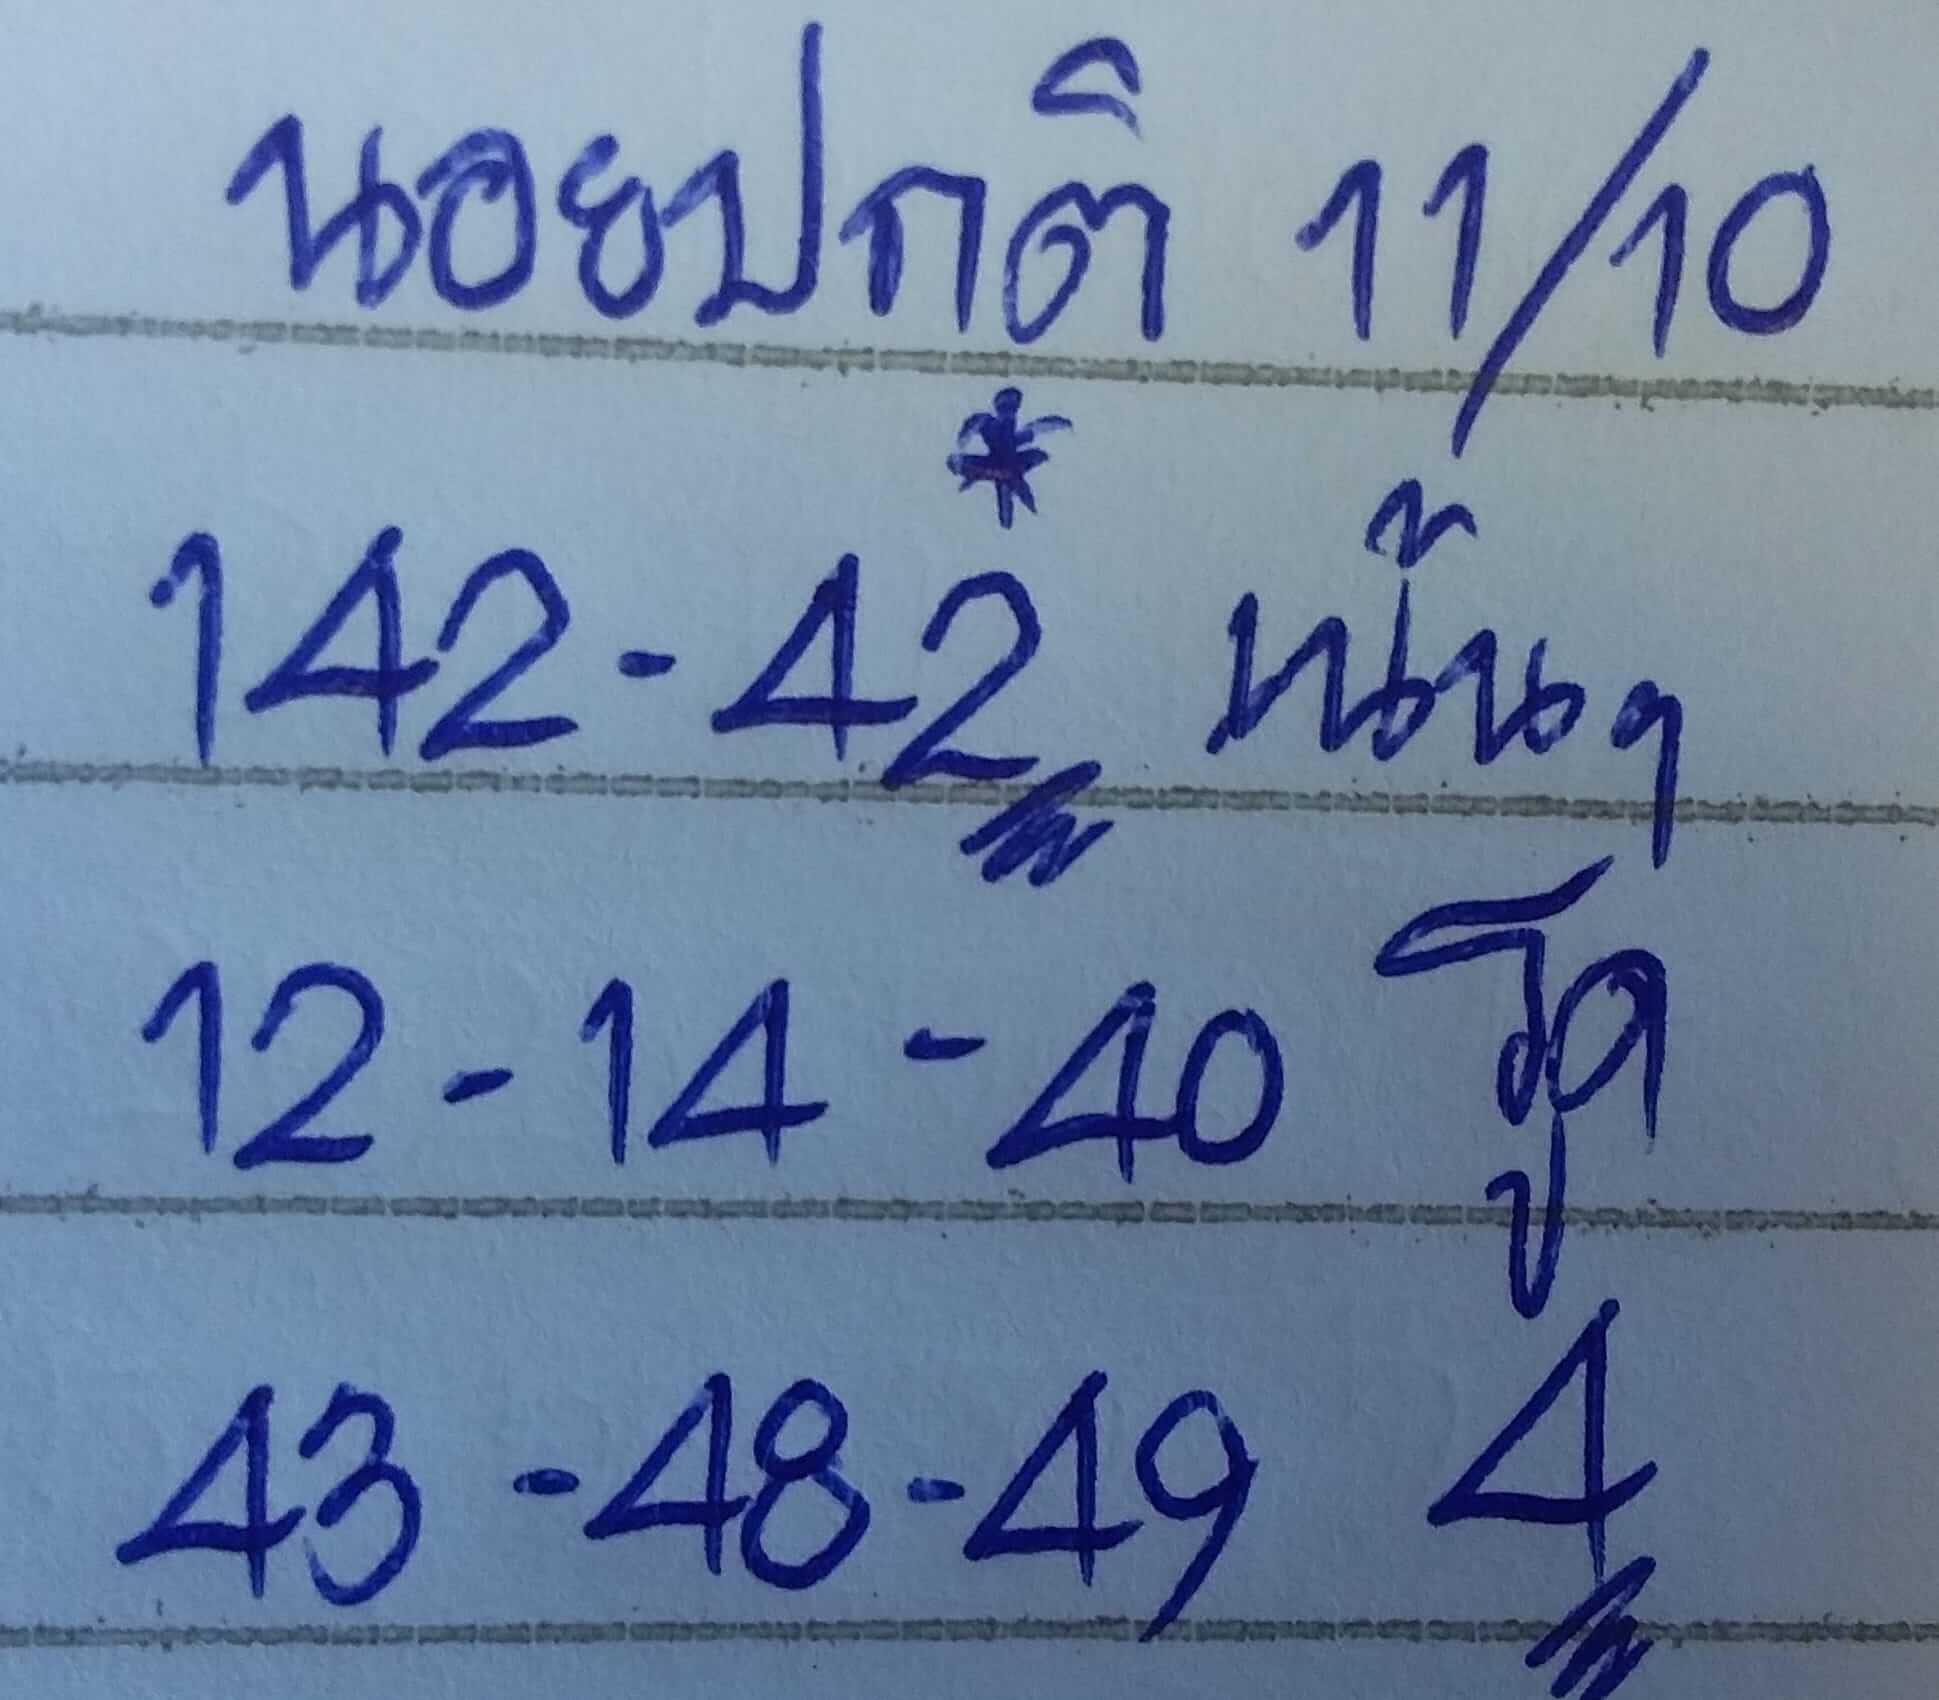 นอยปกติ 11/10
*
142-42 นน้นๆ
12-14-40 รูด
43-48-49 4